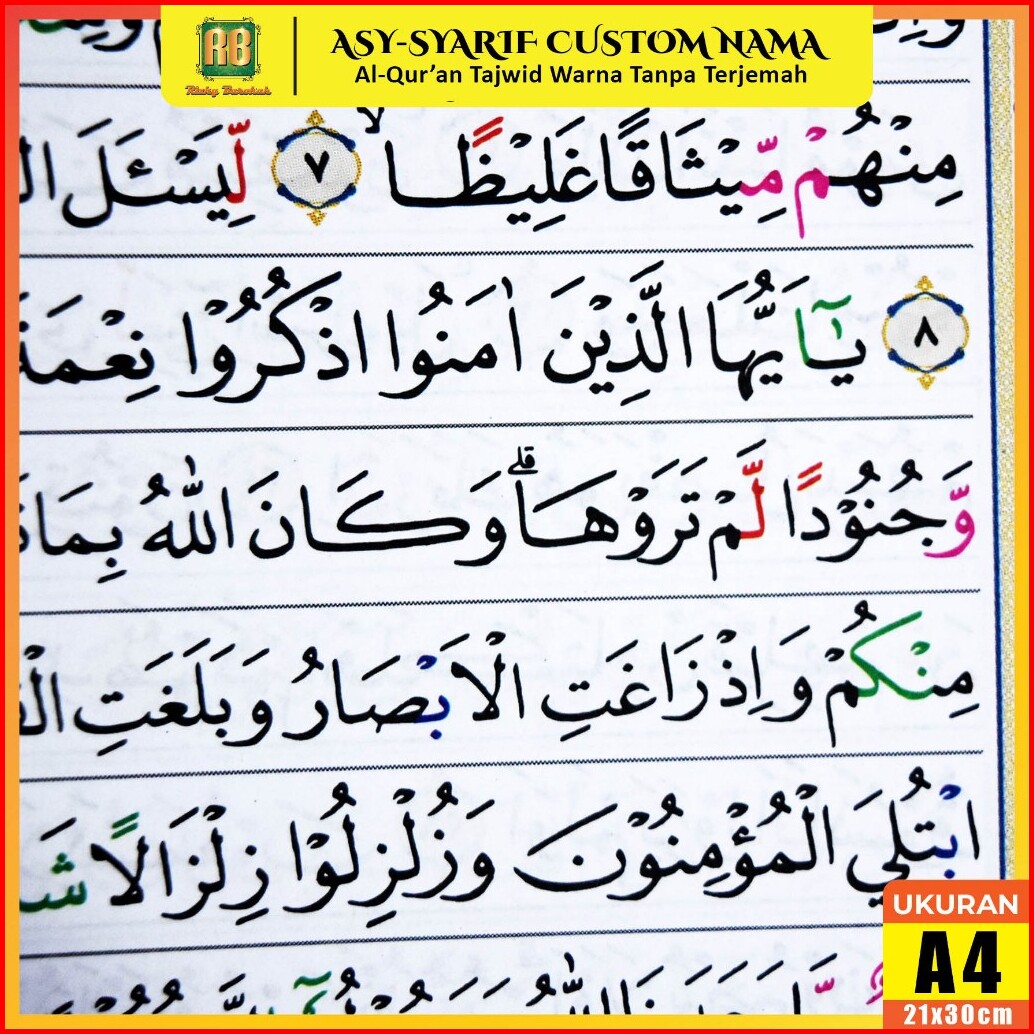 RB
Rizky Barokah
ASY-SYARIF CUSTOM NAMA
Al-Qur'an Tajwid Warna Tanpa Terjemah
مِنْهُمْ مِّيْثَاقًا غَلِيْظًاۙ ٧ لِّيَسْـَٔلَ
٨ يٰٓاَيُّهَا الَّذِيْنَ اٰمَنُوا اذْكُرُوْا نِعْمَةَ
وَّجُنُوْدًا لَّمْ تَرَوْهَاۗ وَكَانَ اللّٰهُ بِمَا
مِنْكُمْ وَاِذْ زَاغَتِ الْاَبْصَارُ وَبَلَغَتِ
ابْتُلِيَ الْمُؤْمِنُوْنَ وَزُلْزِلُوْا زِلْزَالًا
UKURAN
A4
21x30cm